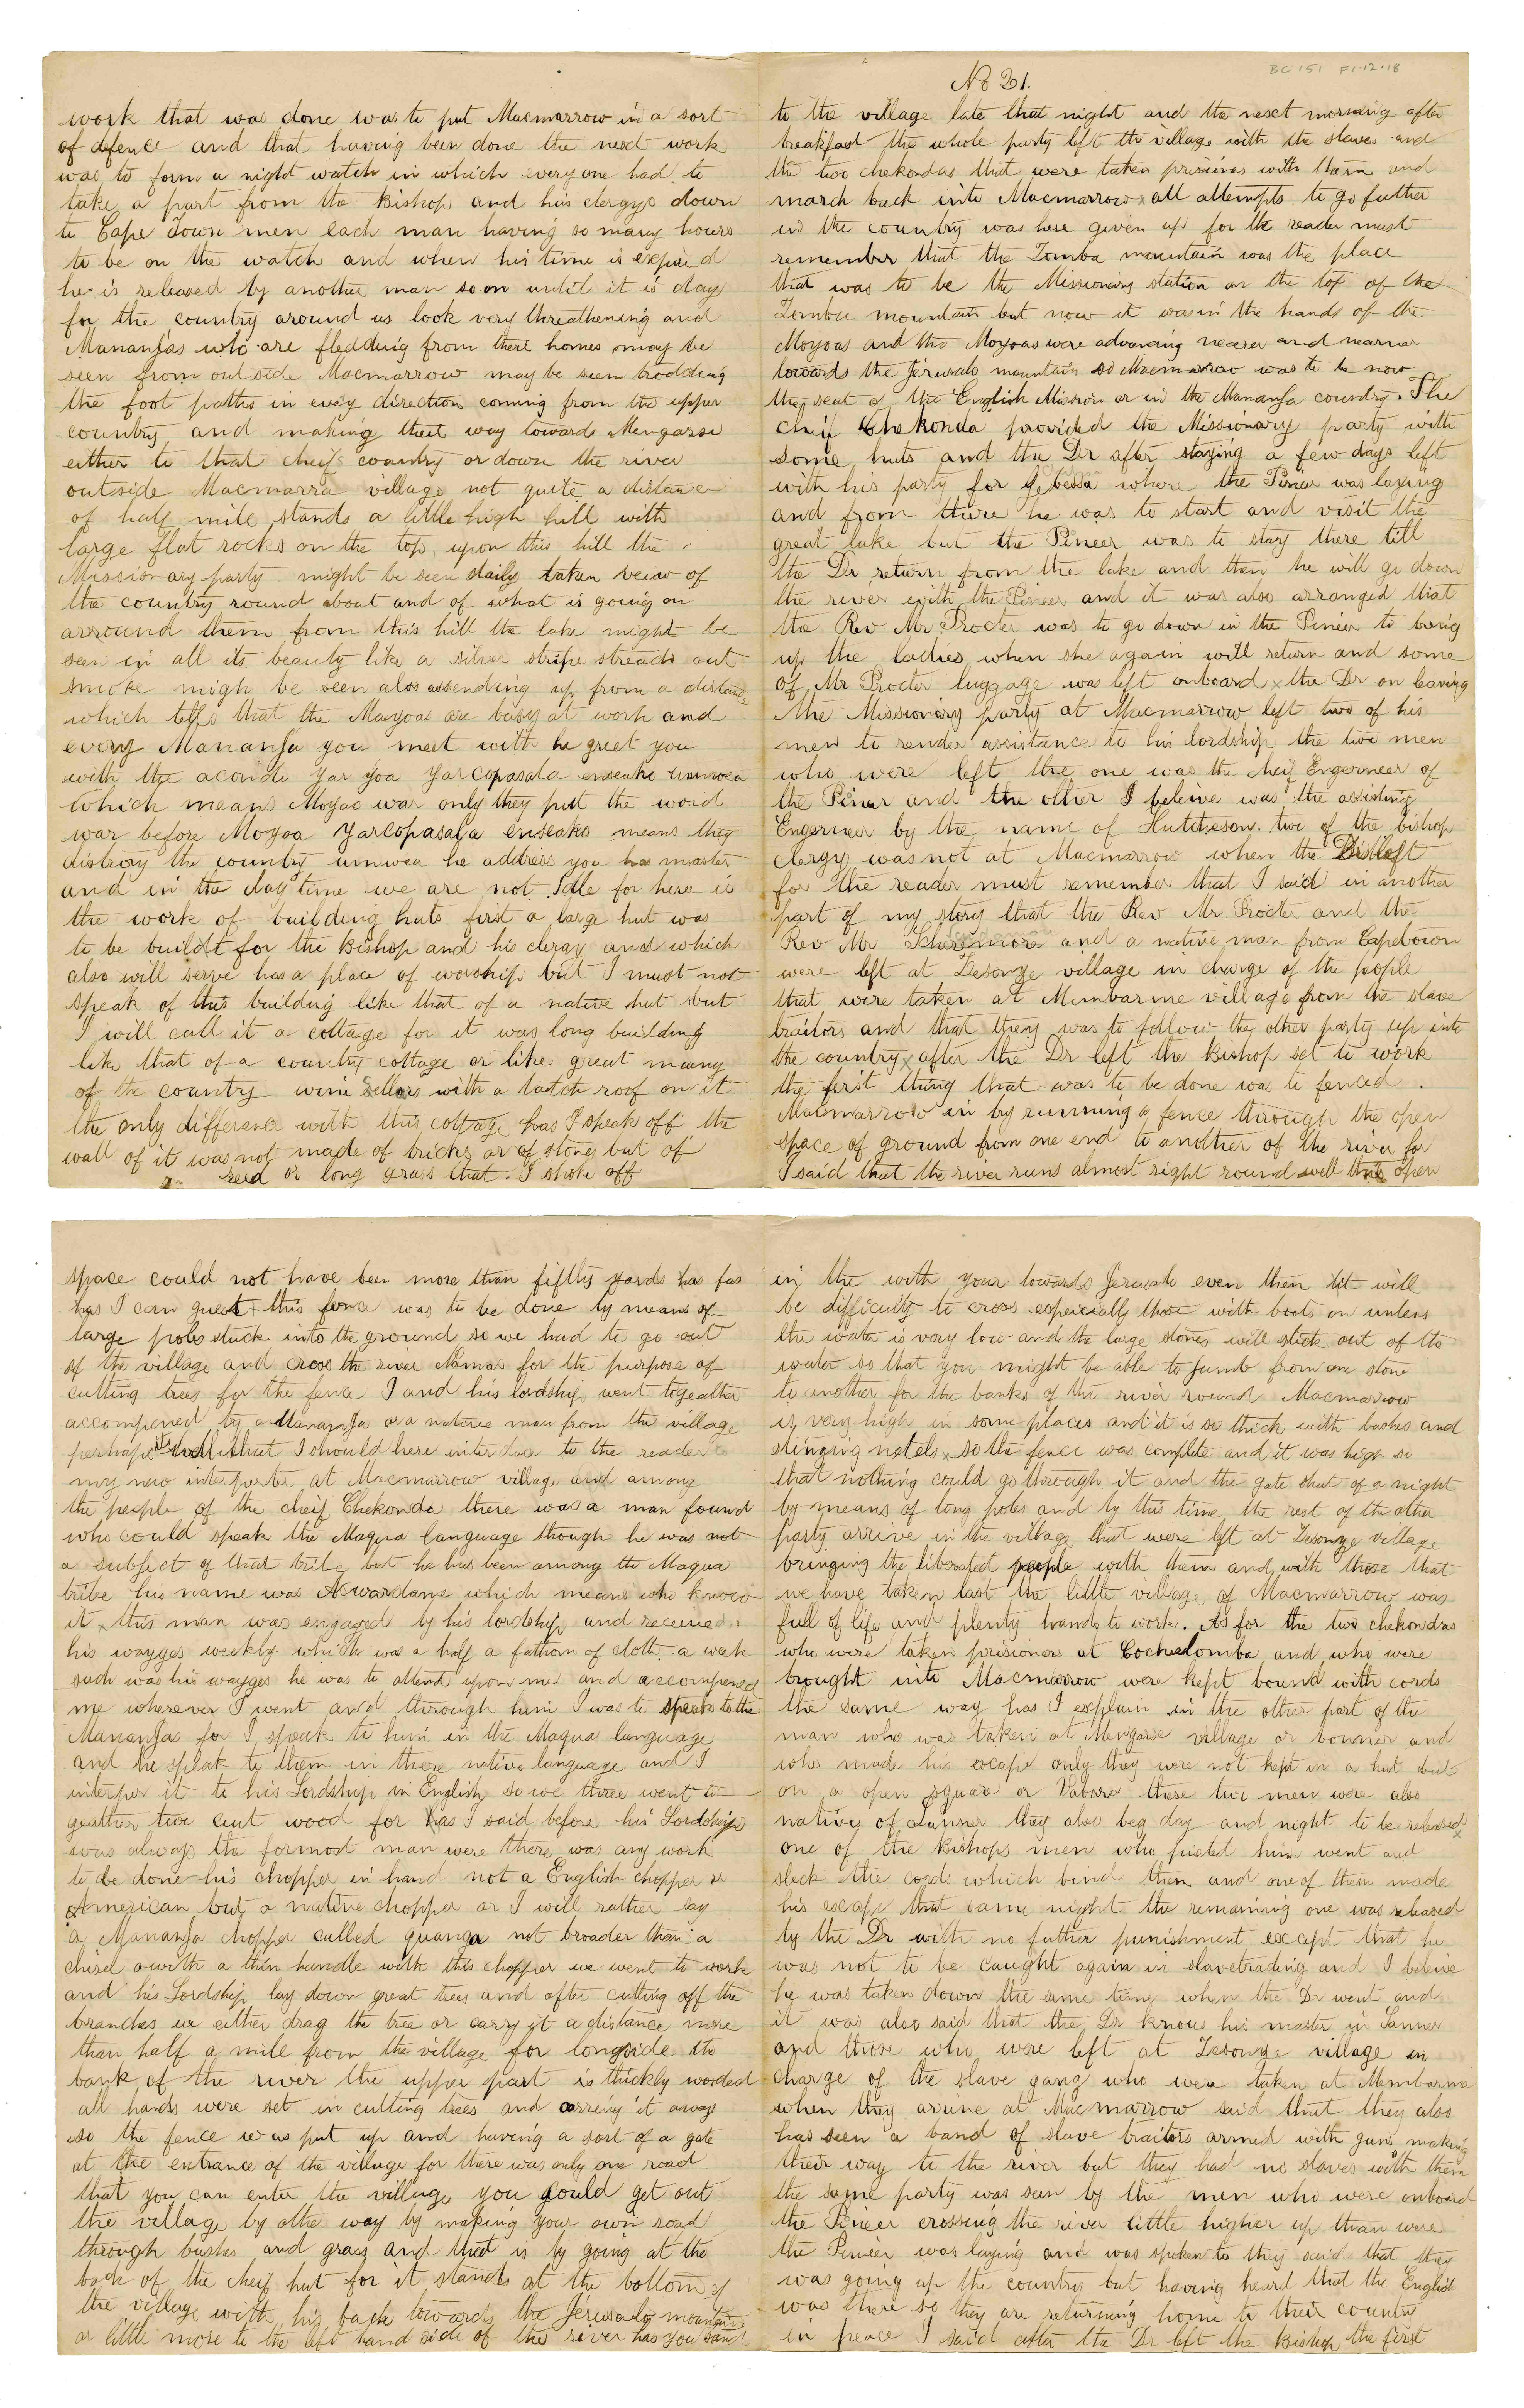 BC 151 F1.12.18
No 21.
to the village late that night and the next morning after
breakfast the whole party left the village with the slaves and
the two chekondas that were taken prisiones with them and
march back into Macmarrow x all attempts to go futher
in the country was here given up for the reader must
remember that the Zomba mountain was the place
that was to be the Missionary station on the top of the
Zomba mountain but now it was in the hands of the
Moyoas and the Moyoas were advancing nearer and nearer
towards the Jerusalo mountain so Macmarrow was to be now
the seat of the English Mission or in the Mananja country. The
cheif Chekonda provided the Missionary party with
some huts and the Dr after staying a few days left
with his party for where the Pineer was laying
and from there he was to start and visit the
great lake but the Pineer was to stay there till
the Dr return from the lake and then he will go down
the river with the Pineer and it was also arranged that
the Rev Mr Procter was to go down in the Pineer to bring
up the ladies when she again will return and some
of Mr Procter luggage was left onboard x the Dr on leaving
the Missionary party at Macmarrow left two of his
men to render assistance to his lordship the two men
who were left the one was the cheif Engerneer of
the Pineer and the other I beleive was the assisting
Engerneer by the name of Hutcheson. two of the bishop
clergy was not at Macmarrow when the Dr left
for the reader must remember that I said in another
part of my story that the Rev Mr Procter and the
Rev Mr and a native man from Capetown
were left at Zesonge village in charge of the people
that were taken at Mimbarme village from the slave
traitors and that they was to follow the other party up into
the country x after the Dr left the Bishop set to work
the first thing that was to be done was to fenced
Macmarrow in by running a fence through the open
space of ground from one end to another of the river for
I said that the river runs almost right round well this open
space could not have been more than fifthy yards has far
has I can guest x this fence was to be done by means of
large poles stuck into the ground so we had to go out
of the village and cross the river Namas for the purpose of
cutting trees for the fence I and his lordship went togeather
accompened by a Mananja or a native man from the village
perhaps its well that I should here interduce to the reader
my new interpeter at Macmarrow village and among
the people of the cheif Chekonda there was a man found
who could speak the Maqua language though he was not
a subject of that tribe but he has been among the Maqua
tribe his name was Aswardanye which means who know
it x this man was engaged by his lordship and received
his wayges weekly which was a half a fathom of cloth a week
such was his wayges he was to attend upon me and accompened
me wherever I went and through him I was to speak to the
Mananjas for I speak to him in the Maqua language
and he speak to them in there native language and I
interper it to his Lordship in English so we three went to
geather two cut wood for has I said before his Lordship
was always the formost man were there was any work
to be done his chopper in hand not a English chopper or
American but a native chopper or I will rather say
a Mananja chopper called quanga not broader than a
chisel with a thin handle with this chopper we went to work
and his Lordship lay down great trees and after cutting off the
branches we either drag the tree or carry it a distance more
than half a mile from the village for longside the
bank of the river the upper part is thickly wooded
all hands were set in cutting trees and carreing it away
so the fence was put up and having a sort of a gate
at the entrance of the village for there was only one road
that you can enter the village you could get out
the village by other way by making your own road
through bushes and grass and that is by going at the
back of the cheif hut for it stands at the bottom of
the village with his back towards the Jerusalo mountain
or little more to the left hand side of the river has you stand
in the with your towards Jerusalo even then it will
be difficulty to cross expeicially those with boots on unless
the water is very low and the large stones will stick out of the
water so that you might be able to jumb from one stone
to another for the banks of the river round Macmarrow
is very high in some places and it is so thick with bushes and
stinging netels x so the fence was complete and it was high so
that nothing could go through it and the gate shut of a night
by means of long poles and by this time the rest of the other
party arrive in the village that were left at Zesonge village
bringing the liberated people with them and with those that
we have taken last the little village of Macmarrow was
full of life and plenty hands to work. As for the two chekondas
who were taken prisioners at Cochalomba and who were
brought into Macmarrow were kept bound with cords
the same way has I explain in the other part of the
man who was taken at Mengasse village or and
who made his escape only they were not kept in a hut but
on a open square or Vabara these two men were also
natives of they also beg day and night to be released x
one of the Bishops men who pieted him went and
slack the cords which bind them and one of them made
his escape that same night the remaining one was released
by the Dr with no futher punishment except that he
was not to be caught again in slavetrading and I beleive
he was taken down the same time when the Dr went and
it was also said that the Dr knows his master in
and those who were left at Zesonge village in
charge of the slave gang who were taken at Mimbarme
when they arrive at Macmarrow said that they also
has seen a band of slave traitors armed with guns making
their way to the river but they had no slaves with them
the same party was seen by the men who were onboard
the Pineer crossing the river little higher up than were
the Pineer was laying and was spoken to they said that they
was going up the country but having heard that the English
was there so they are returning home to their country
in peace I said after the Dr left the Bishop the first
work that was done was to put Macmarrow in a sort
of defence and that having been done the next work
was to form a night watch in which everyone had to
take a part from the Bishop and his clergys down
to Cape Town men each man having so many hours
to be on the watch and when his time is expired
he is released by another man so on until it is day
for the country around us look very threathening and
Mananjas who are fledding from there homes may be
seen from outside Macmarrow may be seen trodding
the foot paths in evey direction coming from the upper
country and making their way towards Mengasse
either to that cheif country or down the river
outside Macmarra village not quite a distance
of half mile stands a little high hill with
large flat rocks on the top upon this hill the
Missionary party might be seen daily taken veiw of
the country round about and of what is going on
arround them from this hill the lake might be
seen in all its beauty like a silver stripe streach out
smoke migh be seen also assending up from a distance
which tells that the Mayoas are busy at work and
every Mananja you meet with he greet you
with the aconde yar yoa yarcopasala enseako umwea
which means Moyao war only they put the word
war before Moyoa yarcopasala enseako means they
distroy the country umwea he address you has master
and in the day time we are not Idle for here is
the work of building huts first a large hut was
to be buildt for the Bishop and his clergy and which
also will serve has a place of worship but I must not
speak of this building like that of a native hut but
I will call it a cottage for it was long building
like that of a country cottage or like great many
of the country wine sellers with a tatch roof on it
the only difference with this cottage has I speak off the
wall of it was not made of bricks or of stone but of
reed or long grass that I spoke off